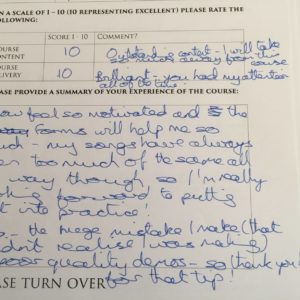 N A SCALE OF 1 - 10 (10 REPRESENTING EXCELLENT) PLEASE RATE THE
LLOWING:
SCORE 1 - 10 COMMENT?
OURSE
ONTENT 10 Outstanding content - I will take
so much away from this
course
OURSE
LIVERY 10 Brilliant - you had my attention
all of the time.
EASE PROVIDE A SUMMARY OF YOUR EXPERIENCE OF THE COURSE:
feel so motivated and the
forms will help me so
ch - my songs have always
en too much of the same all
way through so I'm really
king forward to putting
it into practice!
- the mega mistake I make (that
dn't realise I was making)
poor quality demos - so thank you
for that tip!
ASE TURN OVER